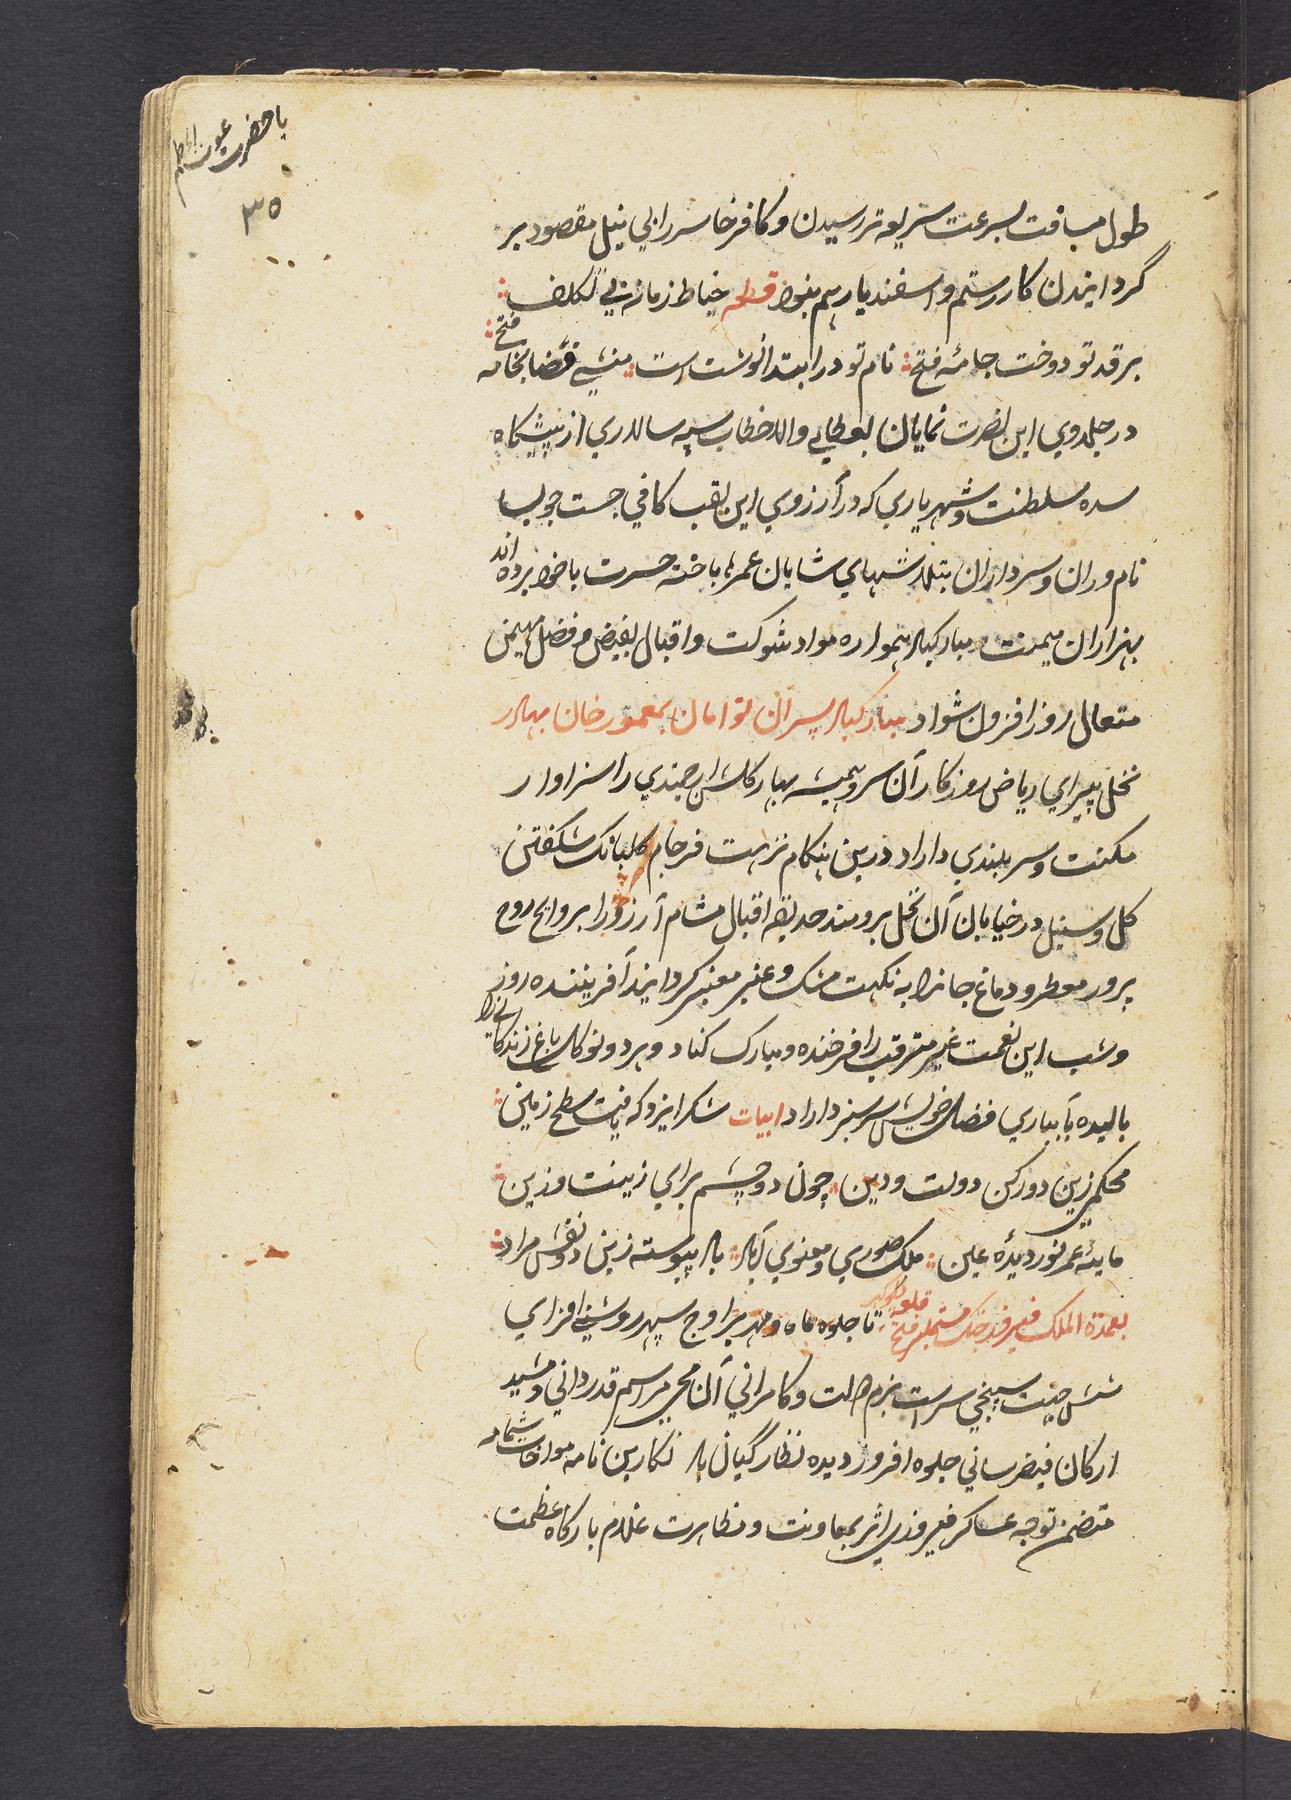 یا حضرت غوث الاعظم
۳۵
طول مسافت بسرعت سریعه تر رسیدن و کافر خاسر را بی نیل مقصود بر
گردانیدن کار رستم و اسفندیار هم نبود قطعه خیاط زمانه بی تکلف
بر قد تو دوخت جامهٔ فتح نام تو در ابتدا نوشت است منشی قضا بخامه فتح
در جلدوی این نصرت نمایان بعطای والا خطاب سپه سالاری از پیشگاه
سده سلطنت و شهریاری که در آرزوی این لقب کافی جست جوبها
نام وران و سرداران بتلاشهای شایان عمرها باخته حسرت با خود برده اند
بهزاران میمنت مبارکباد همواره مواد شوکت و اقبال بفیض و فضل مهیمن
متعال روز افزون شواد مبارکباد پسران توامان بمعمور خان بهادر
نخل پیرای ریاض روزگار آن سرو همیشه بهار گلشن ارجمندی را سزاوار
مکنت و سربلندی داراد درین هنگام نزهت فرجام گلبانک شگفتن
گل و سنبل در خیابان آن نخل برومند حدیقه اقبال مشام آرزو را بروایح روح
پرور معطر و دماغ جانرا به نکهت مشک و عنبر معنبر گردانید آفریننده روز
و شب این نعمت غیر مترقب را فرخنده و مبارک کناد و هر دو نوگل باغ زندگانی را
بالیده بآبیاری فضل خویش سرسبز داراد ابیات شکر ایزد که یافت سطح زمین
محکمی زین دو رکن دولت و دین چون دو چشم برای زینت و زین
مایهٔ عمر نور دیدهٔ عین ملک صوری و معنوی آباد باد پیوسته زین دو نقش مراد
بعمدة الملک فیروز جنک مشتملبر فتح قلعه تا جلوه ماه و مهر بر اوج سپهر روشنی افزای
شش جهت سپنجی سراست بزم ایالت و کامرانی آن محیی مراسم قدردانی و مشید
ارکان فیض رسانی جلوه افروز دیده نظارگیان باد نگارین نامه مواخات شمامه
متضمن توجه عساکر فیروزی اثر بمعاونت و مظاهرت غلام بارگاه عظمت